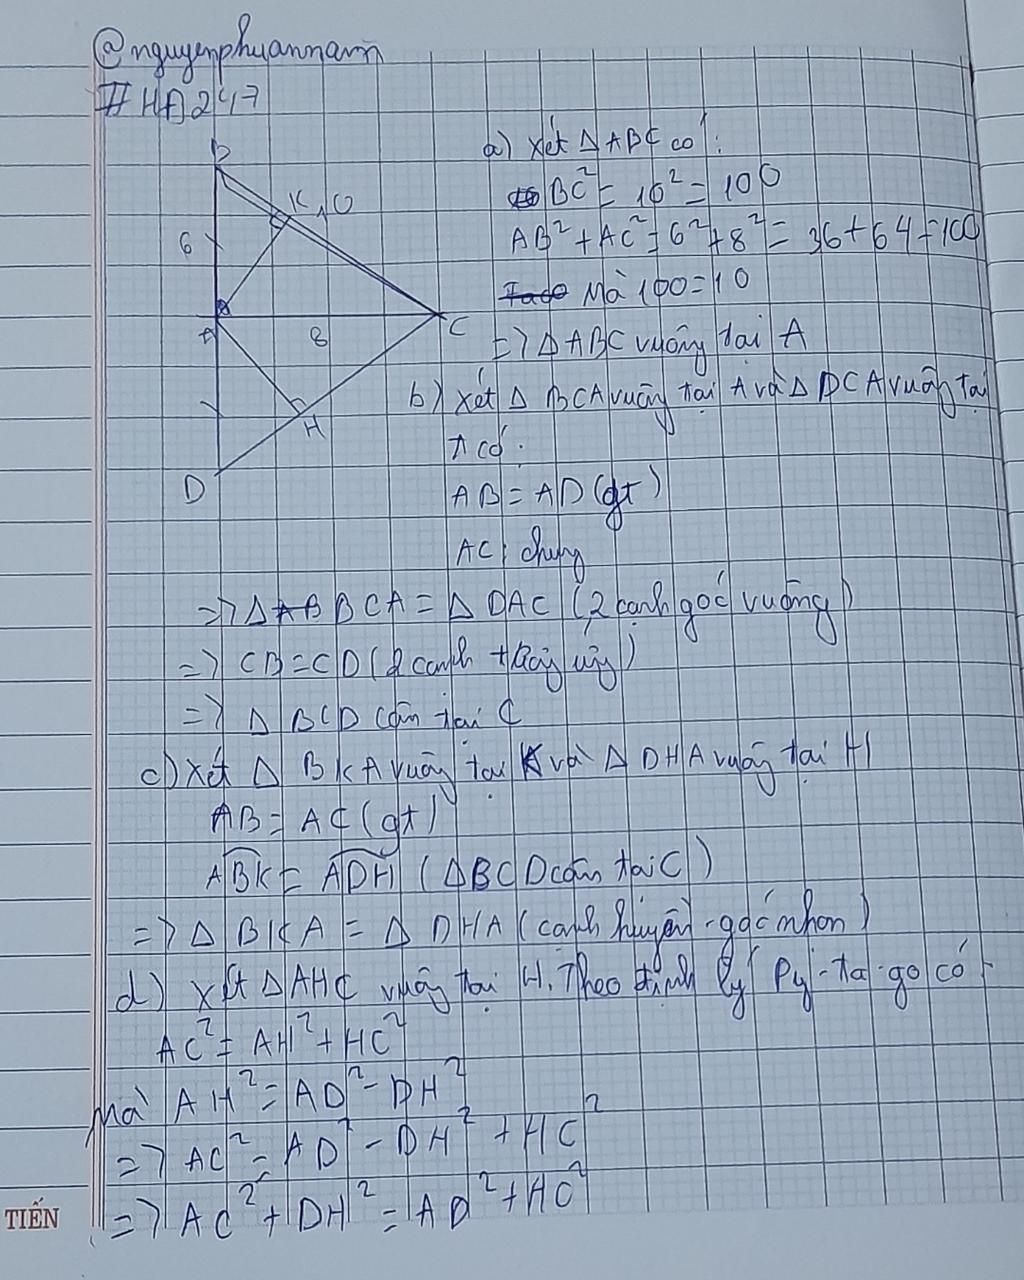 @nguyenphuannam
#HĐ247
B
K
10
6
A
8
C
H
D
a) Xét △ABC có:
BC² = 10² = 100
AB² + AC² = 6² + 8² = 36 + 64 = 100
Mà 100 = 10
=> △ABC vuông tại A
b) Xét △ BCA vuông tại A và △ DCA vuông tại
A có:
AB = AD (gt)
AC: chung
=> △ BCA = △ DAC (2 cạnh góc vuông)
=> CB = CD (2 cạnh tương ứng)
=> △ BCD cân tại C
c) Xét △ BKA vuông tại K và △ DHA vuông tại H
AB = AC (gt)
ABK = ADH (△BCD cân tại C)
=> △ BKA = △ DHA (cạnh huyền - góc nhọn)
d) Xét △AHC vuông tại H. Theo định lý Py-ta-go có
AC² = AH² + HC²
Mà AH² = AD² - DH²
=> AC² = AD² - DH² + HC²
=> AC² + DH² = AD² + HC²
TIẾN